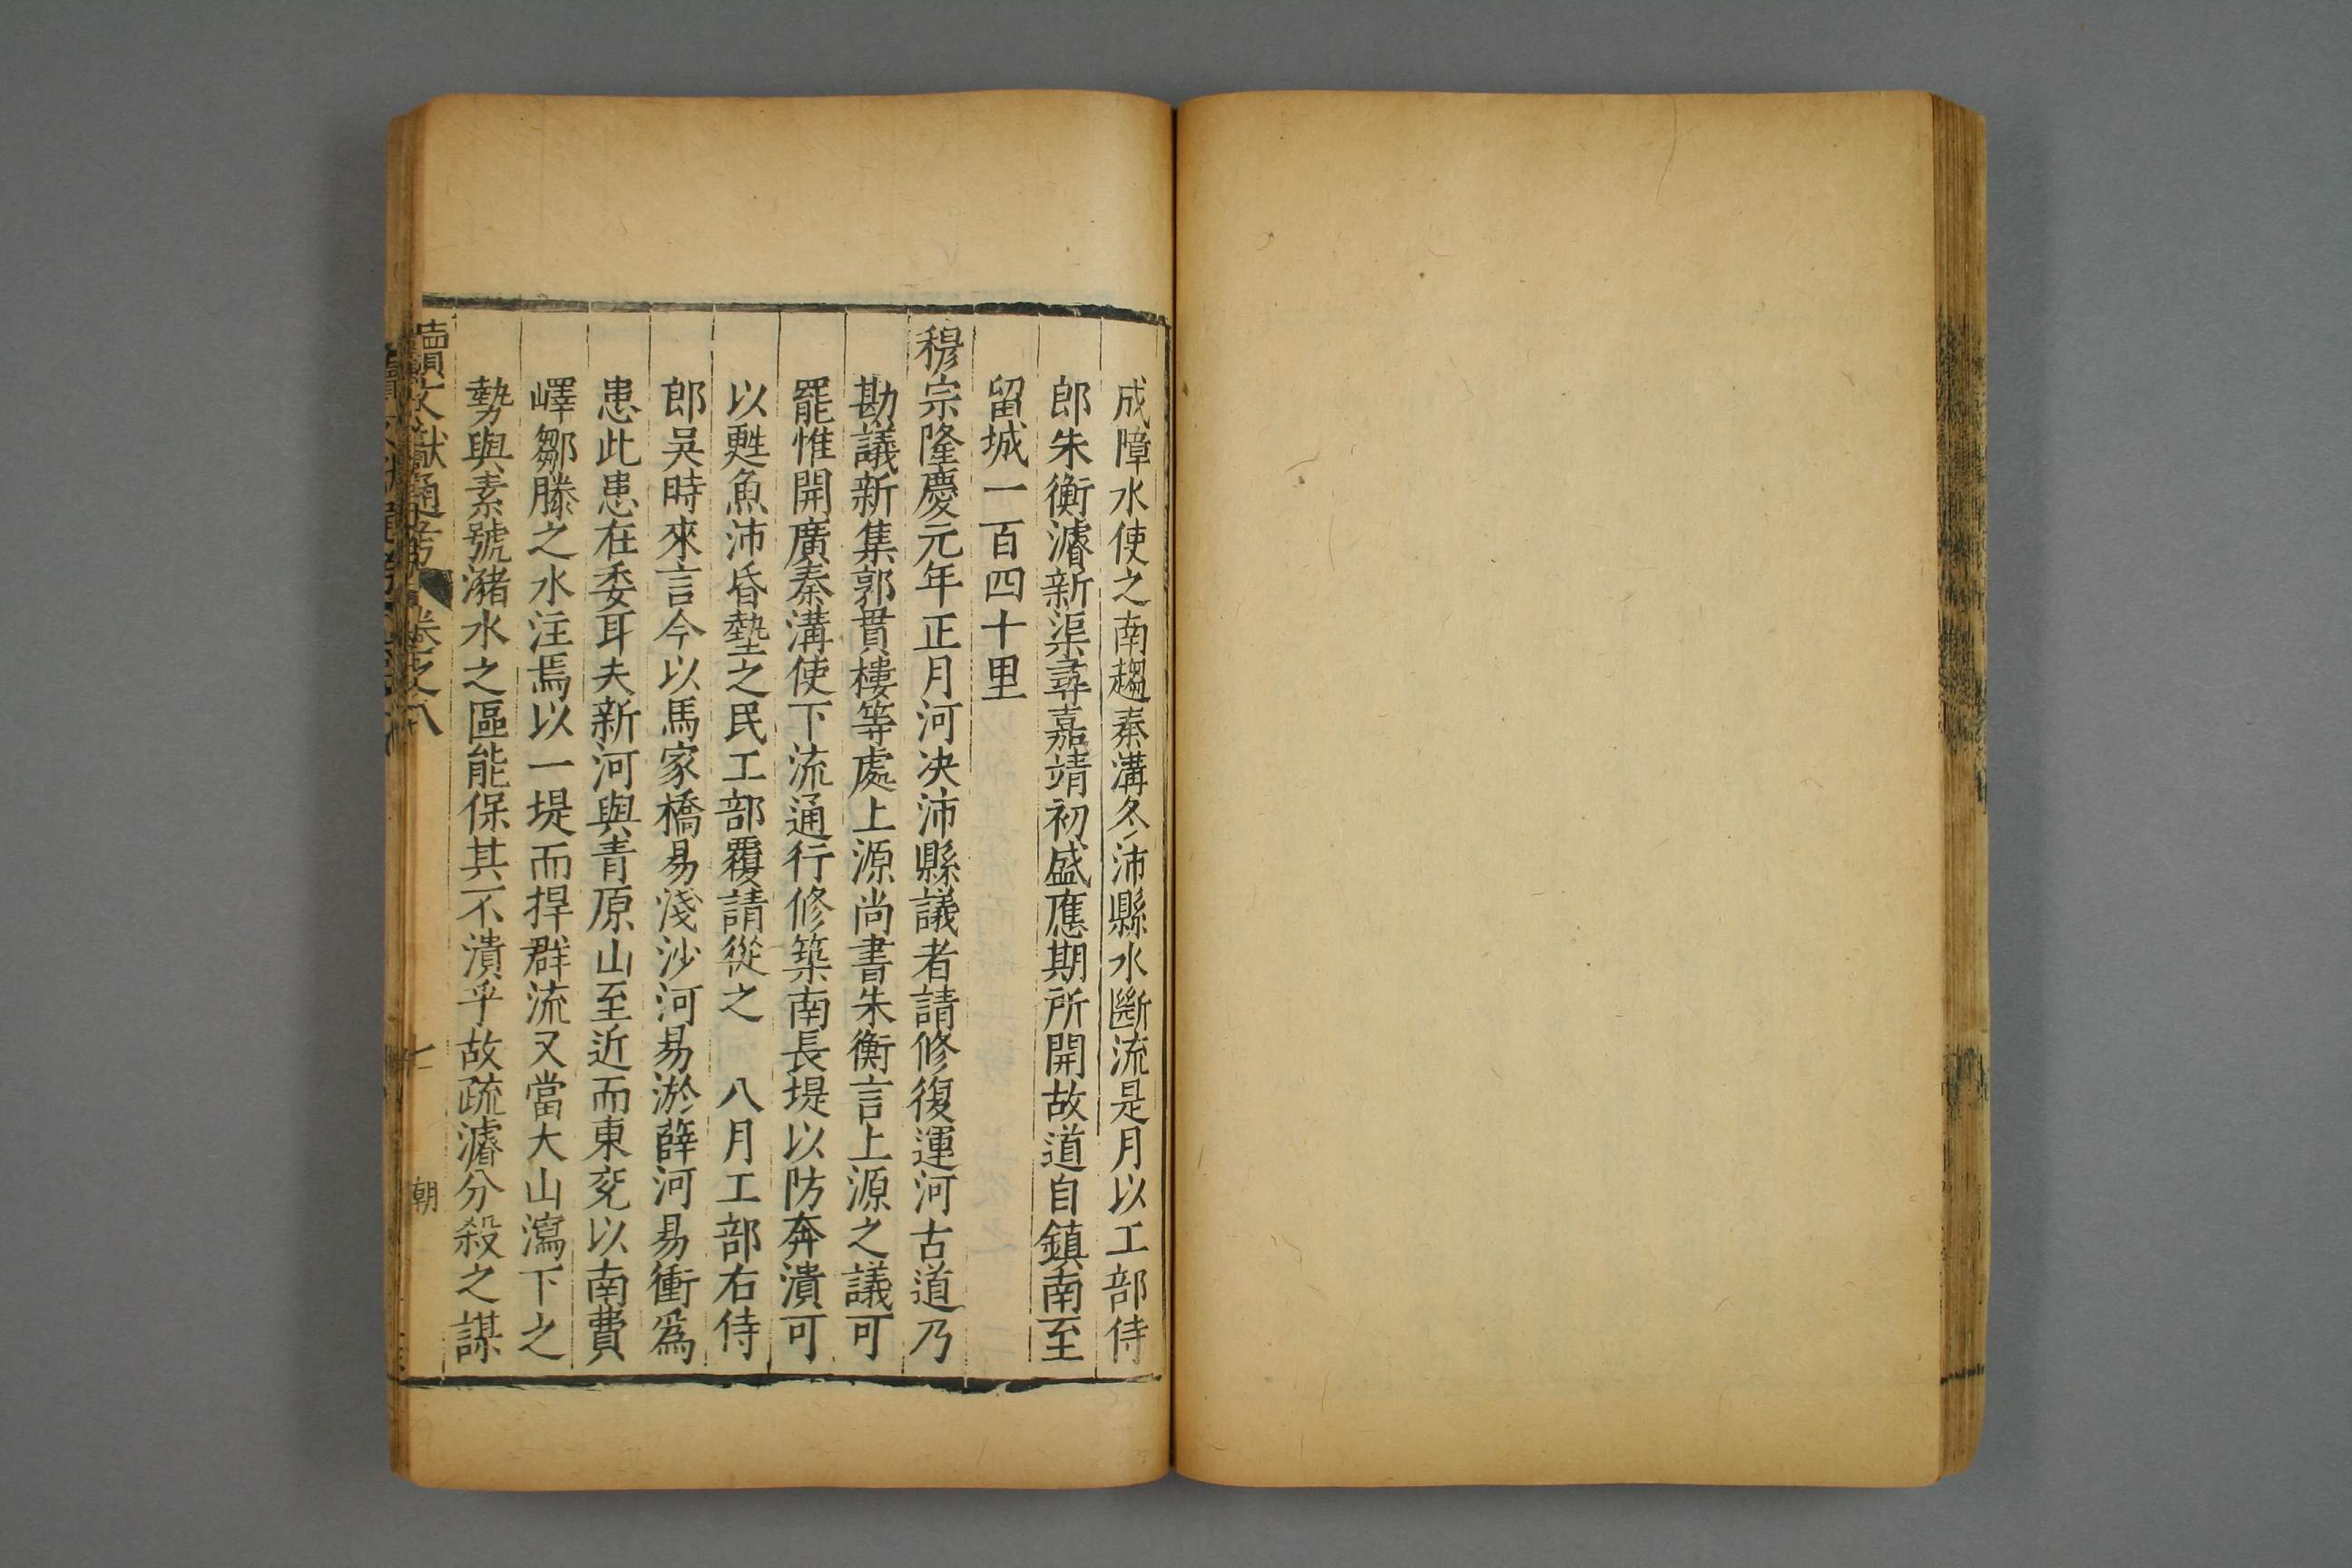 成障水使之南趨秦溝冬沛縣水斷流是月以工部侍
郎朱衡濬新渠尋嘉靖初盛應期所開故道自鎮南至
留城一百四十里
穆宗隆慶元年正月河决沛縣議者請修復運河古道乃
勘議新集郭貫樓等處上源尚書朱衡言上源之議可
罷惟開廣秦溝使下流通行修築南長堤以防奔潰可
以甦魚沛昏墊之民工部覆請從之　八月工部右侍
郎吳時來言今以馬家橋易淺沙河易淤薛河易衝爲
患此患在委耳夫新河與青原山至近而東兗以南費
嶧鄒滕之水注焉以一堤而捍群流又當大山瀉下之
勢與素號瀦水之區能保其不潰乎故疏濬分殺之謀
續文獻通考 卷之八
七
朝